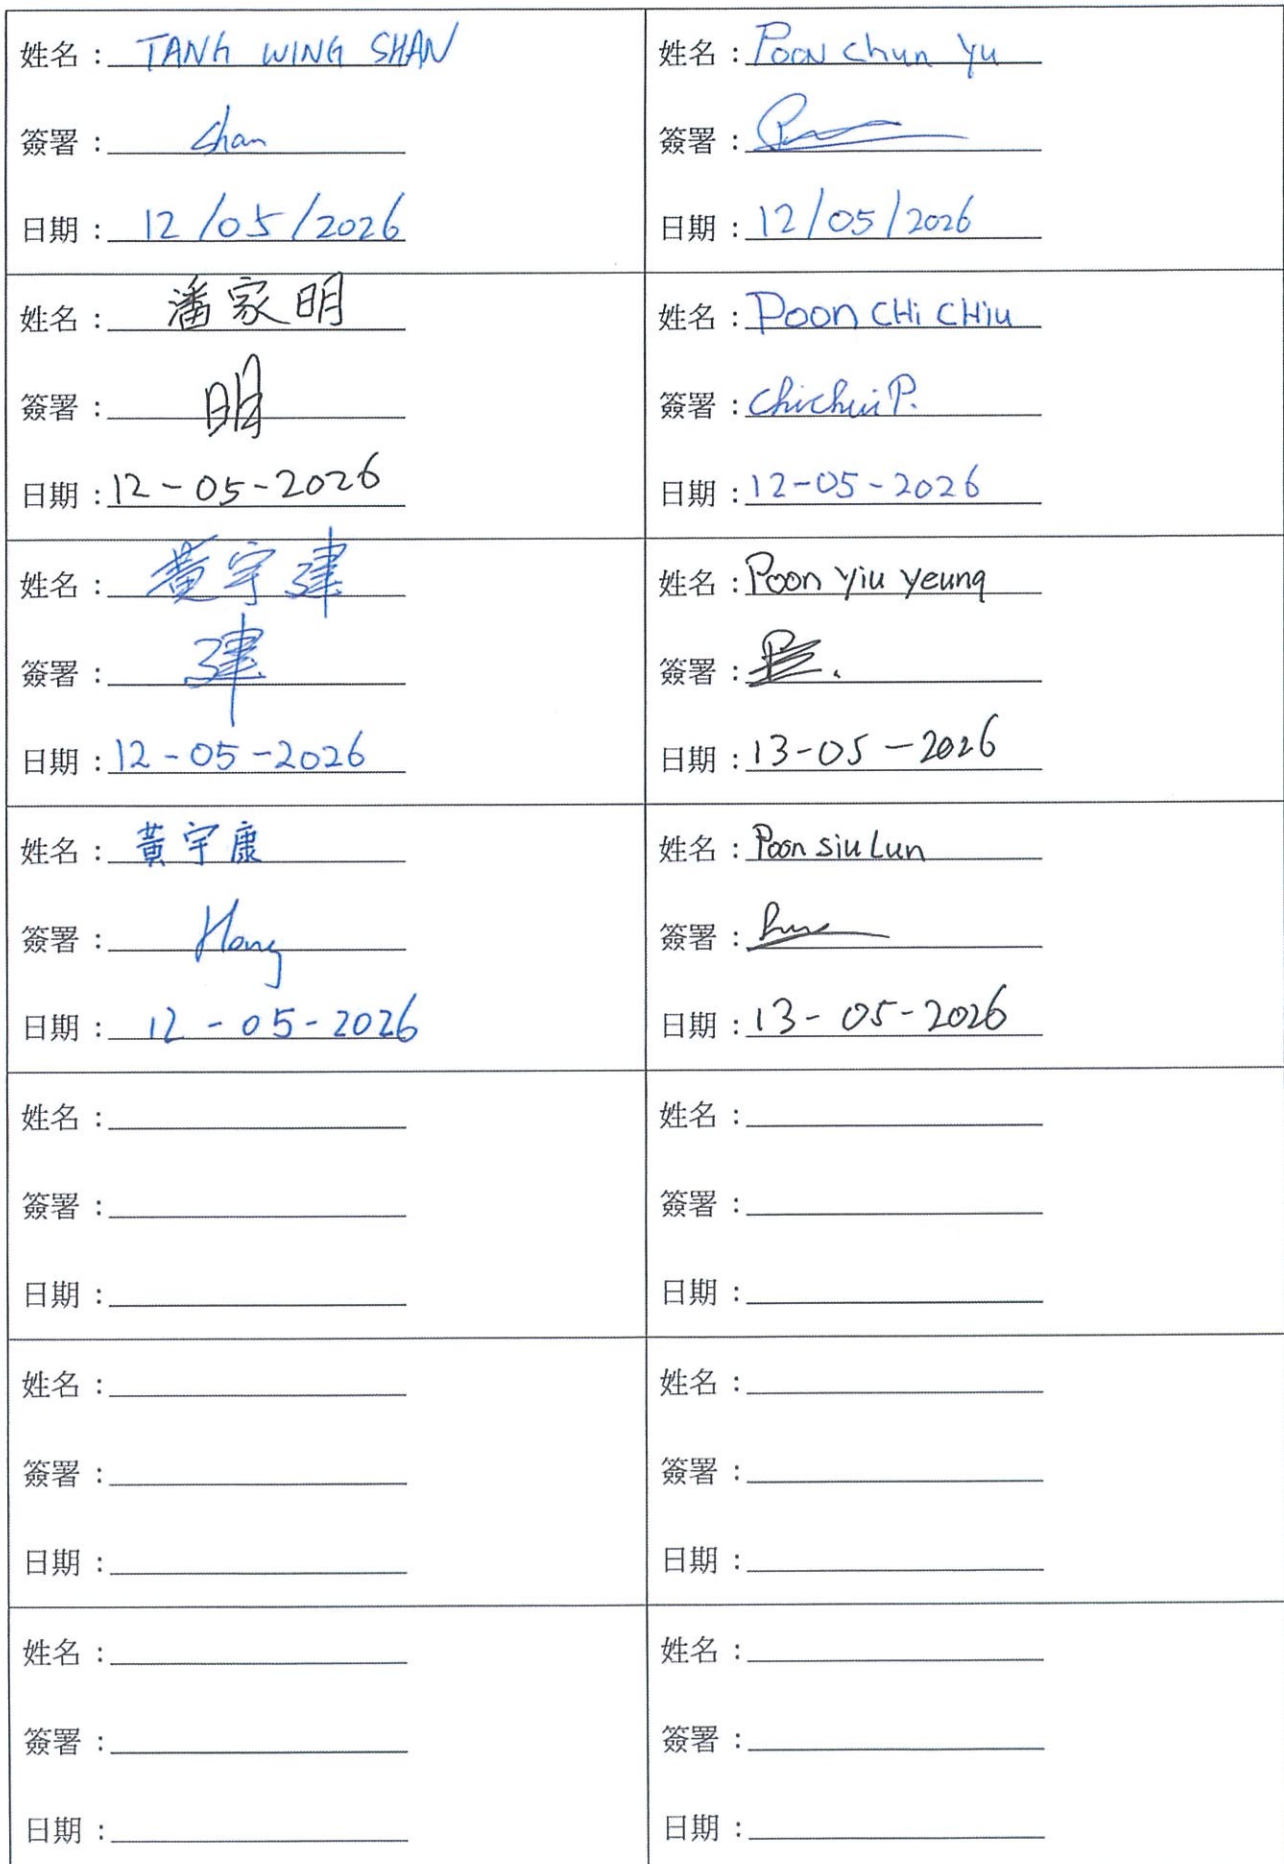 姓名：TANG WING SHAN
簽署：Shan
日期：12/05/2026
姓名：Poon Chun Yu
簽署：
日期：12/05/2026
姓名：潘家明
簽署：明
日期：12-05-2026
姓名：Poon CHi CHiu
簽署：Chichiu P.
日期：12-05-2026
姓名：黃宇建
簽署：建
日期：12-05-2026
姓名：Poon Yiu Yeung
簽署：
日期：13-05-2026
姓名：黃宇康
簽署：Hong
日期：12-05-2026
姓名：Poon Siu Lun
簽署：
日期：13-05-2026
姓名：
簽署：
日期：
姓名：
簽署：
日期：
姓名：
簽署：
日期：
姓名：
簽署：
日期：
姓名：
簽署：
日期：
姓名：
簽署：
日期：